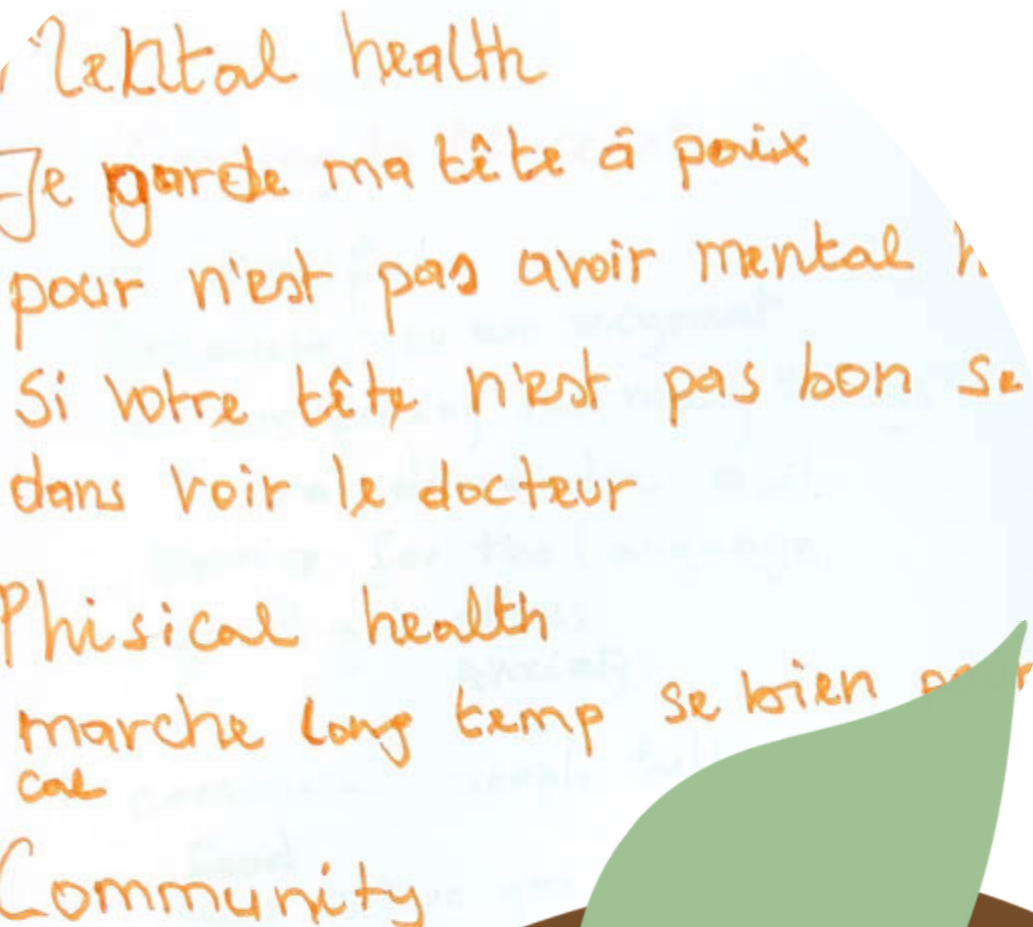 Mental health
Je garde ma tête à paix
pour n'est pas avoir mental
si votre tête n'est pas bon se
dans voir le docteur
Phisical health
marche long temp se bien
cal
Community